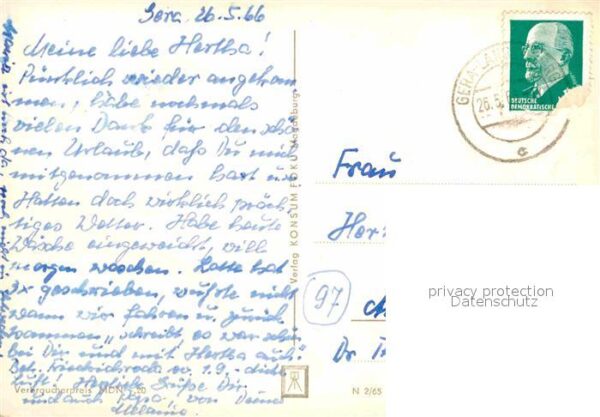 Gera, 26.5.66
Meine liebe Hertha!
Pünktlich wieder angekom
men, habe nochmals
vielen Dank für den schö
nen Urlaub, daß Du mich
mitgenommen hast u.
Hatten doch wirklich präch
tiges Wetter. Habe heute
Wäsche eingeweicht, will
morgen waschen. Lotte hat
3x geschrieben, wußte nicht
wann wir fahren u. zurück
kommen, schreibt es war schön
bei Dir und mit Hertha auch.
Friedrichroda v. 1.9. -
Herzliche Grüße Dir
und auch Papa von Deiner
Melanie
Verbraucherpreis MDN -,20
Verlag KONSUM FOKU Magdeburg
GERA
26.5.
c
DEUTSCHE
DEMOKRATISCHE
Frau
Her
97
Dr
N 2/65
privacy protection
Datenschutz